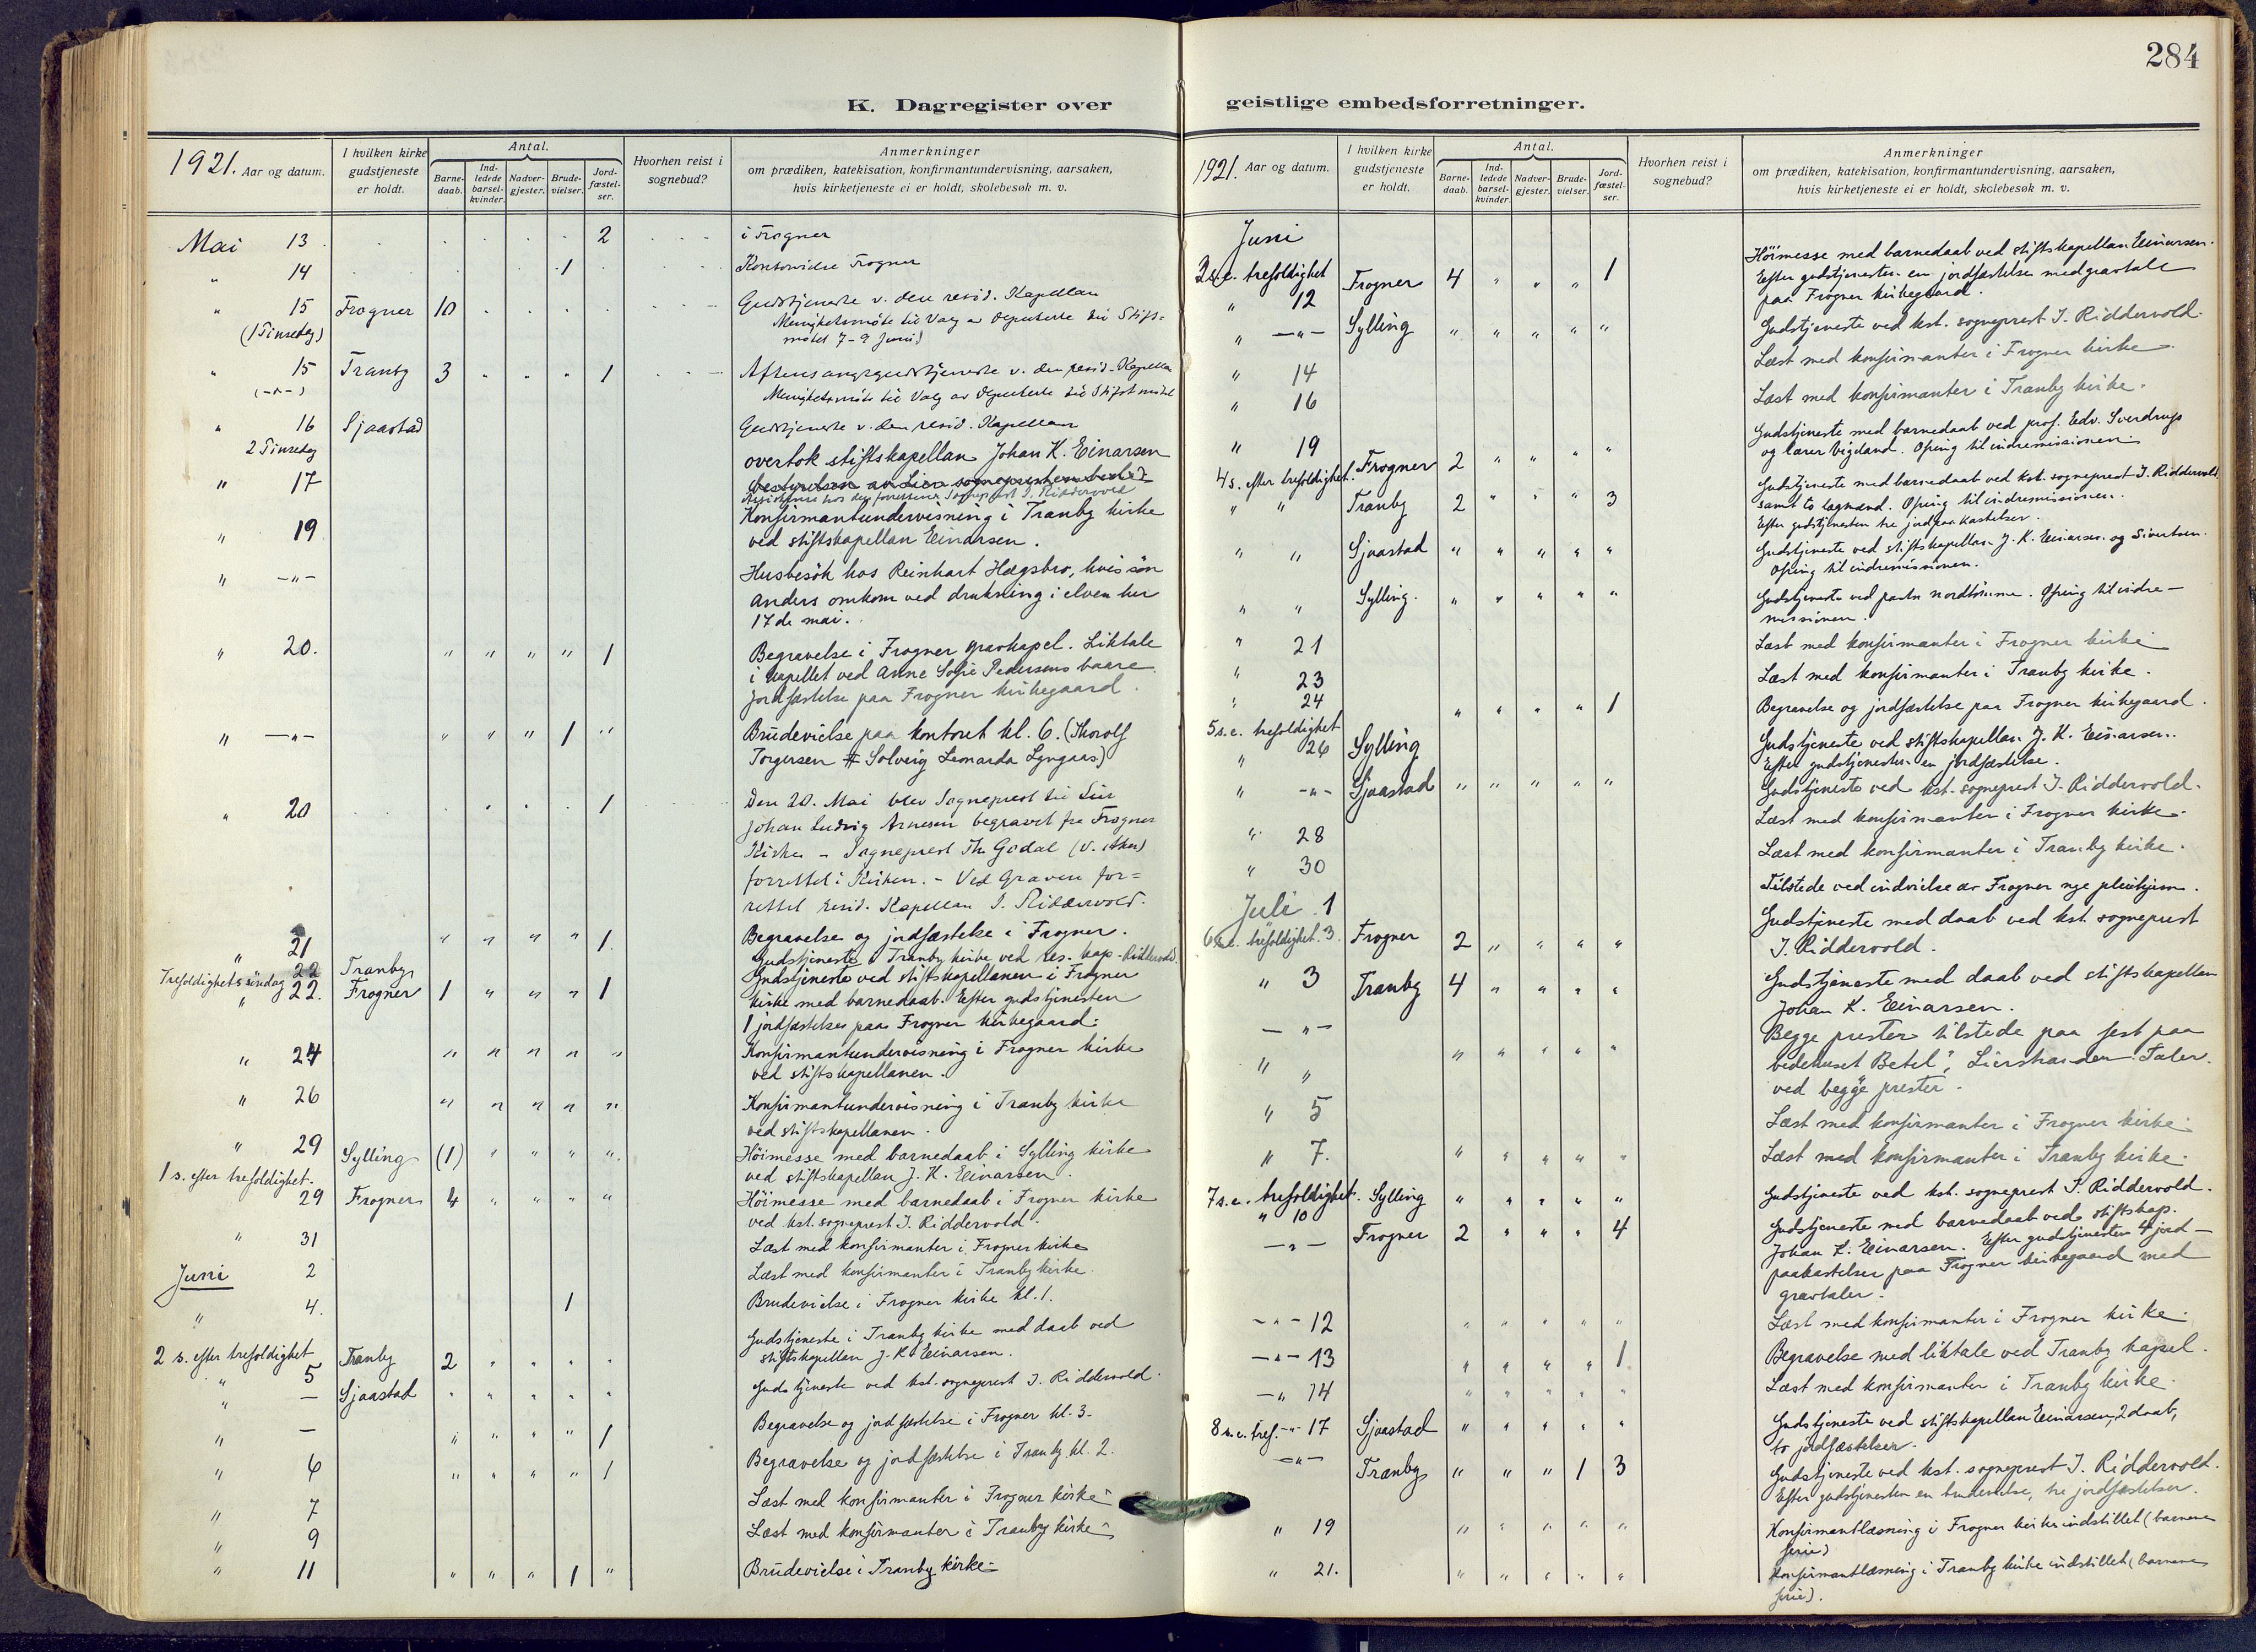 284
K. Dagregister over geistlige embedsforretninger.
1921. Aar og datum.
I hvilken kirke gudstjeneste er holdt.
Antal.
Barnedaab.
Indledede barselkvinder.
Nadvergjester.
Brudevielser.
Jordfæstelser.
Hvorhen reist i sognebud?
Anmerkninger
om prædiken, katekisation, konfirmantundervisning, aarsaken,
hvis kirketjeneste ei er holdt, skolebesøk m. v.
Mai 13 . . . . . . 2 . . . i Frogner
" 14 . . . . . 1 . . . Frogner
" 15 Frogner 10 . . . . . Gudstjeneste v. den resid. Kapellan
(1 Pinsedag) Menighetsmöte til Valg av Deputerte til Stifts=
mötet 7-9 Juni)
" 15 Tranby 3 . . . 1 Aftensangsgudstjeneste v. den resid. Kapellan
(-"-) Menighetsmöte til Valg av Deputerte til Stiftsmötet
" 16 Sjaastad Gudstjeneste v. den resid. Kapellan
2 Pinsedag
" 17 overtok stiftskapellan Johan K. Einarsen
" 19 Konfirmantundervisning i Tranby kirke
ved stiftskapellan Einarsen.
" -"- Husbesök hos Reinhart Hægsbro, hvis sön
Anders omkom ved drukning i elven her
17de mai.
" 20. " " " " 1 Begravelse i Frogner gravkapel. Liktale
i kapellet ved Anne Sofie Pedersens baare
Jordfæstelse paa Frogner kirkegaard.
" -"- " " " 1 " Brudevielse paa kontoret kl. 6. (Thorolf
Torgersen # Solveig Leonarda Lyngaas)
" 20 . . . . 1 Den 20. Mai blev Sogneprest til Lier
Johan Ludvig Arnesen begravet fra Frogner
Kirke - Sogneprest Th. Godal (V. Aker)
forrettet i Kirken. - Ved Graven for=
rettet resid. Kapellan J. Riddervold.
" 21 " " " " 1. Begravelse og jordfæstelse i Frogner.
22 Tranby Gudstjeneste i Tranby kirke ved res. kap. Riddervold.
Trefoldighetssöndag 22. Frogner 1 " " " 1 Gudstjeneste ved stiftskapellanen i Frogner
kirke med barnedaab. Efter gudstjenesten
1 jordfæstelse paa Frogner kirkegaard.
" 24 " " " " " Konfirmantundervisning i Frogner kirke
ved stiftskapellanen.
" 26 " " " " " Konfirmantundervisning i Tranby kirke
ved stiftskapellanen.
" 29 Sylling (1) " " " " Höimesse med barnedaab i Sylling kirke
1 s. efter trefoldighet. ved stiftskapellan J. K. Einarsen.
29 Frogner 4 " " " " Höimesse med barnedaab i Frogner kirke
ved kst. sogneprest J. Riddervold.
" 31 Læst med konfirmanter i Frogner kirke
Juni 2 Læst med konfirmanter i Tranby kirke.
" 4. 1 Brudevielse i Frogner kirke kl. 1.
Gudstjeneste i Tranby kirke med daab ved
2 s. efter trefoldighet 5 Tranby 2 " " " " stiftskapellan J. K. Einarsen.
" - Sjaastad " " " " " Gudstjeneste ved kst. sogneprest J. Riddervold.
" - " " " " 1 Begravelse og jordfæstelse i Frogner kl. 3.
" 6 " " " " 1 Begravelse og jordfæstelse i Tranby kl. 2.
" 7 Læst med konfirmanter i Frogner kirke
" 9 Læst med konfirmanter i Tranby kirke
" 11 " " " 1 " Brudevielse i Tranby kirke
1921. Aar og datum.
I hvilken kirke gudstjeneste er holdt.
Antal.
Barnedaab.
Indledede barselkvinder.
Nadvergjester.
Brudevielser.
Jordfæstelser.
Hvorhen reist i sognebud?
Anmerkninger
om prædiken, katekisation, konfirmantundervisning, aarsaken,
hvis kirketjeneste ei er holdt, skolebesøk m. v.
Juni
3 s.e. trefoldighet Frogner 4 " " " 1 Höimesse med barnedaab ved stiftskapellan Einarsen.
" 12 Efter gudstjenesten en jordfæstelse med gravtale
paa Frogner kirkegaard.
" -"- Sylling " " " " " Gudstjeneste ved kst. sogneprest J. Riddervold.
" 14 Læst med konfirmanter i Frogner kirke.
" 16 Læst med konfirmanter i Tranby kirke.
" 19 Gudstjeneste med barnedaab ved prof. Edv. Sverdrup
4 s. efter trefoldighet. Frogner 2 " " " " og lærer Vigeland. Ofring til indremissionen
" " Tranby 2 " " " 3 Gudstjeneste med barnedaab ved kst. sogneprest J. Riddervold
samt to lægmænd. Ofring til indremissionen.
Efter gudstjenesten tre jordpaakastelser.
" " Sjaastad " " " " " Gudstjeneste ved stiftskapellan J. K. Einarsen og Sivertsen.
Ofring til indremissionen.
" " Sylling. " " " " " Gudstjeneste ved pastor Ofring til indre-
missionen.
" 21 Læst med konfirmanter i Frogner kirke
" 23 Læst med konfirmanter i Tranby kirke.
" 24 " " " " 1 Begravelse og jordfæstelse paa Frogner kirkegaard.
5 s.e. trefoldighet
" 26 Sylling Gudstjeneste ved stiftskapellan J. K. Einarsen.
Efter gudstjenesten en jordfæstelse.
" -"- Sjaastad " " " " " Gudstjeneste ved kst. sogneprest J. Riddervold.
" 28 Læst med konfirmanter i Frogner kirke.
" 30 Læst med konfirmanter i Tranby kirke.
Juli 1 Tilstede ved indvielse av Frogner nye pleiehjem.
6 s.e. trefoldighet. 3. Frogner 2 " " " " Gudstjeneste med daab ved kst. sogneprest
J. Riddervold.
" 3 Tranby 4 " " " " Gudstjeneste med daab ved stiftskapellan
Johan K. Einarsen.
- " - " " " " " Begge prester tilstede paa fest paa
" " bedehuset "Betel", Lierstranden. Taler
ved begge prester.
" 5 Læst med konfirmanter i Frogner kirke.
" 7. " " " " " Læst med konfirmanter i Tranby kirke.
7 s.e. trefoldighet. Sylling " " " " " Gudstjeneste ved kst. sogneprest J. Riddervold.
" 10
-"- Frogner 2 " " " 4 Gudstjeneste med barnedaab ved stiftskap.
Johan K. Einarsen. Efter gudstjenesten 4 jord-
paakastelser paa Frogner kirkegaard med
gravtaler.
-"- 12 " " " " " Læst med konfirmanter i Frogner kirke.
-"- 13 " " " " 1 Begravelse med liktale ved Tranby kapel.
-" 14 " " " " " Læst med konfirmanter i Tranby kirke.
8 s.e. tref. -"- 17 Sjaastad " " " " " Gudstjeneste ved stiftskapellan Einarsen, 2 daab,
to jordfæstelser.
-"- Tranby " " " 1 3 Gudstjeneste ved kst. sogneprest J. Riddervold.
Efter gudstjenesten en brudevielse, tre jordfæstelser.
" 19 " " " " " Konfirmantlæsning i Frogner kirke indstillet (barnene
ferie)
" 21. " " " " " Konfirmantlæsning i Tranby kirke indstillet (barnene
ferie).